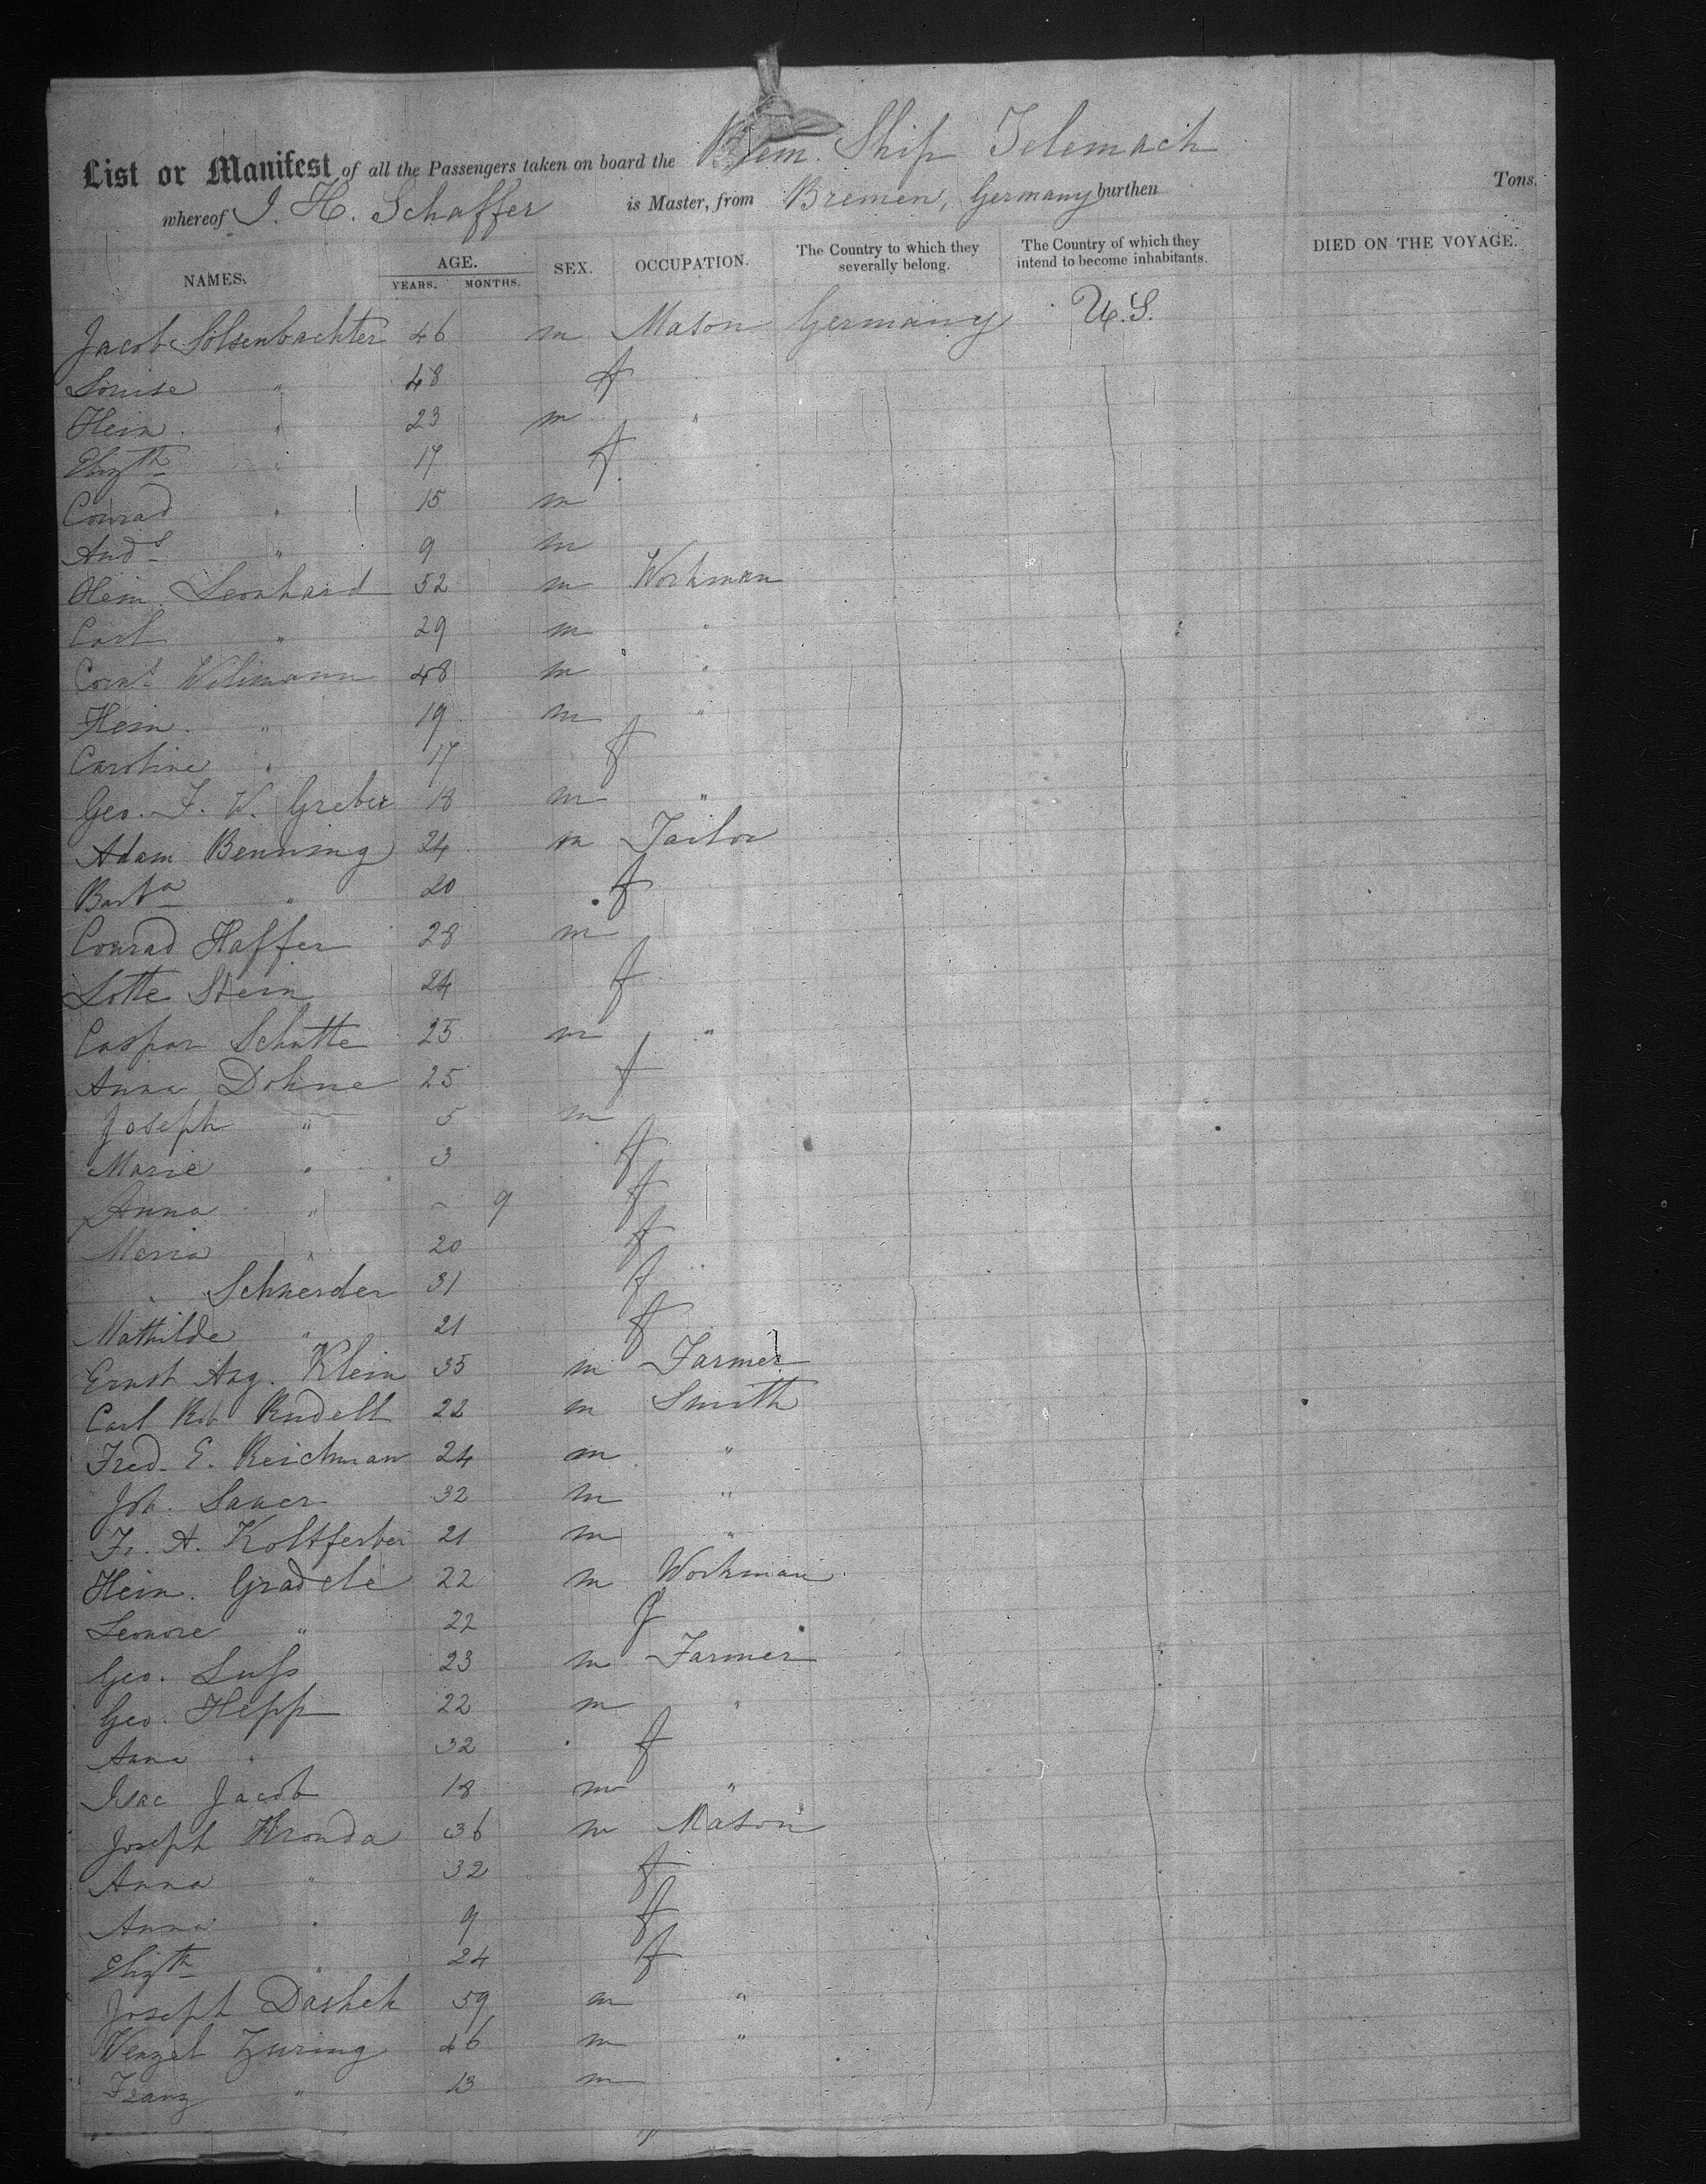 List or Manifest of all the Passengers taken on board the Brem. Ship Telemach
whereof J. H. Schaffer is Master, from Bremen, Germany burthen Tons.
NAMES. AGE. YEARS. MONTHS. SEX. OCCUPATION. The Country to which they severally belong. The Country of which they intend to become inhabitants. DIED ON THE VOYAGE.
Jacob Solsenbachter 46 m Mason Germany U.S.
Louise " 48 f
Hein " 23 m "
Elizth " 17 f
Conrad " 15 m
Ands " 9 m
Hein. Leonhard 52 m Workman
Carl " 29 m "
Corns Wilimann 48 m "
Hein. " 19 m "
Caroline " 17 f
Geo. F. W. Greber 18 m "
Adam Benning 24 m Tailor
Barba " 20 f
Conrad Haffer 28 m
Lotte Stein 24 f
Caspar Schutte 25 m "
Anna Dohne 25 f
Joseph " 5 m
Marie " 3 f
Anna " - 9 f
Maria " 20 f
" Schneider 31 f
Mathilde " 21 f
Ernst Aug. Klein 35 m Farmer
Carl Rob Rudell 22 m Smith
Fred. E. Reichman 24 m "
Joh. Sauer 32 m "
Fr. A. Koltferber 21 m "
Hein. Gradele 22 m Workman
Leonore " 22 f
Geo. Luss 23 m Farmer
Geo. Hepp 22 m "
Anna " 32 f
Isac Jacob 18 m "
Joseph Hronda 36 m Mason
Anna " 32 f
Anna " 9 f
Elizth " 24 f
Joseph Dashek 59 m "
Wenzel Zuring 46 m "
Franz " 13 m